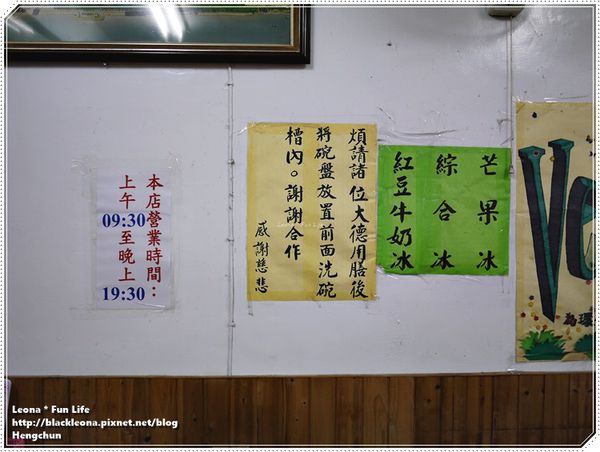 本店營業時間：
上午
09:30至晚上
19:30
煩請諸位大德用膳後
將碗盤放置前面洗碗
槽內。謝謝合作
感謝慈悲
芒果冰
綜合冰
紅豆牛奶冰
Ve
為環
Leona * Fun Life
http://blackleona.pixnet.net/blog
Hengchun